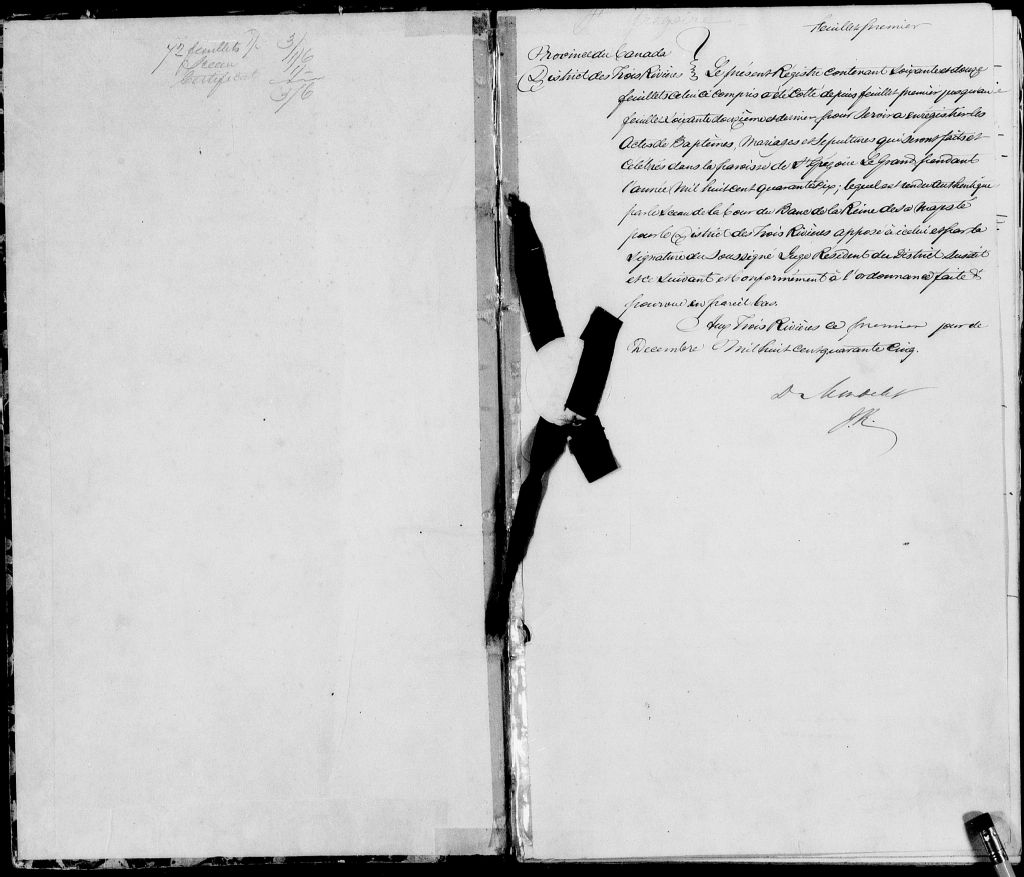 72 feuillets 3/
Sceau 1/6
Certificat 1/
5/6
St Grégoire
feuillet premier
Province du Canada
District des Trois Rivières } Le présent Régistre contenant Soixante et douze
feuillets celui cé compris a été Cotté depuis feuillet premier jusqu'au
feuillet Soixante douzième et dernier pour servir a enrégistrer les
Actes de Baptêmes, Mariages et Sépultures qui seront faits et
Célébrés dans la paroisse de St Grégoire Le Grand pendant
l'année Mil huit cent quarante Six; lequel est rendu authentique
par le Sceau de la Cour du Banc de la Reine de sa Majesté
pour le District des Trois Rivières apposé à icelui et par la
Signature du Soussigné Juge Resident du District susdit
et ce Suivant et conformément à l'ordonnance faite &
pourvue en pareil Cas.
Aux Trois Rivières ce premier jour de
Decembre Mil huit cent quarante Cinq.
D. Mondelet
J.R.